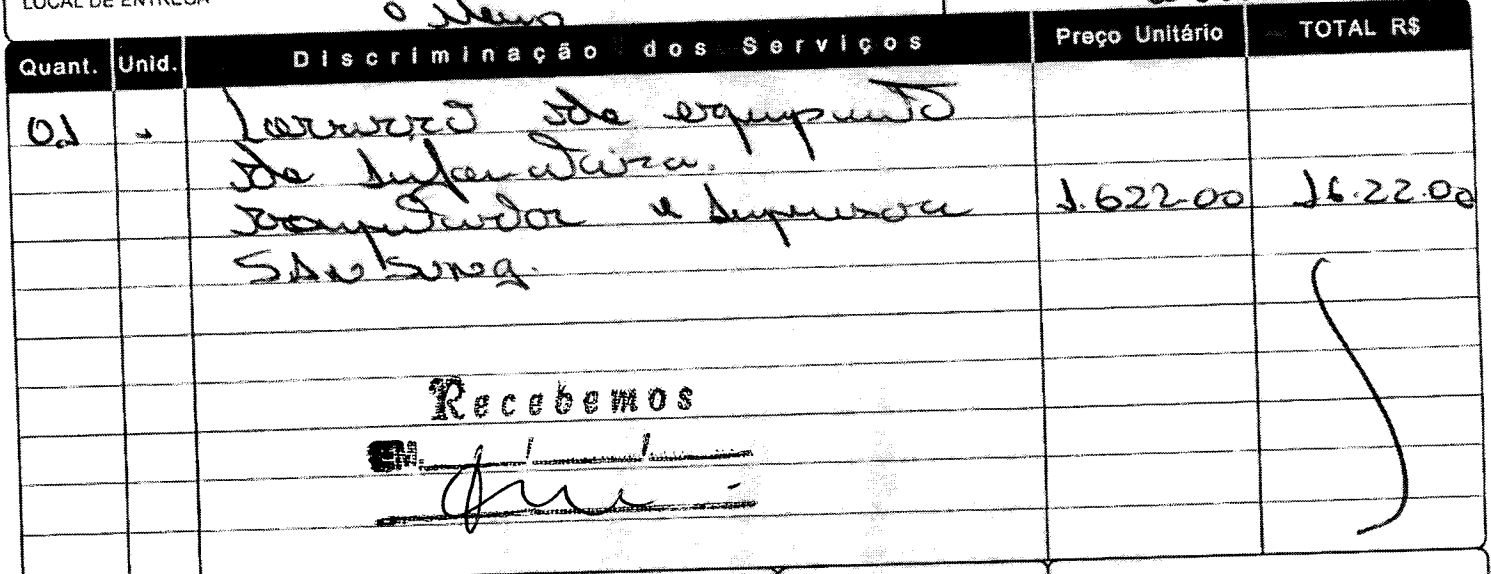 LOCAL DE ENTREGA o mesmo
Quant. Unid. Discriminação dos Serviços Preço Unitário TOTAL R$
01 - de equipamento
de Informatica.
Computador e Impressora 1.622.00 16.22.00
SANSUNG.
Recebemos
EM / /